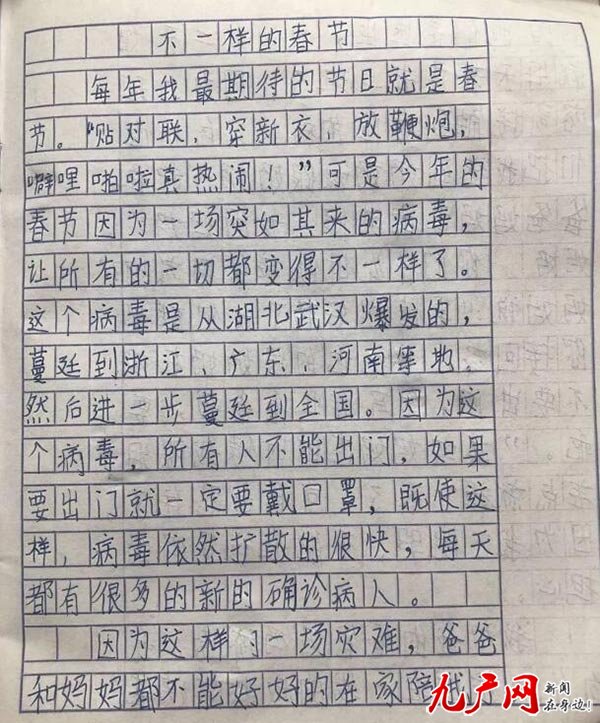 不一样的春节
每年我最期待的节日就是春
节。“贴对联，穿新衣，放鞭炮，
噼哩啪啦真热闹！”可是今年的
春节因为一场突如其来的病毒，
让所有的一切都变得不一样了。
这个病毒是从湖北武汉爆发的，
蔓延到浙江、广东、河南等地，
然后进一步蔓延到全国。因为这
个病毒，所有人不能出门，如果
要出门就一定要戴口罩，既使这
样，病毒依然扩散的很快，每天
都有很多的新的确诊病人。
因为这样的一场灾难，爸爸
和妈妈都不能好好的在家陪我
九广网 新闻在身边!